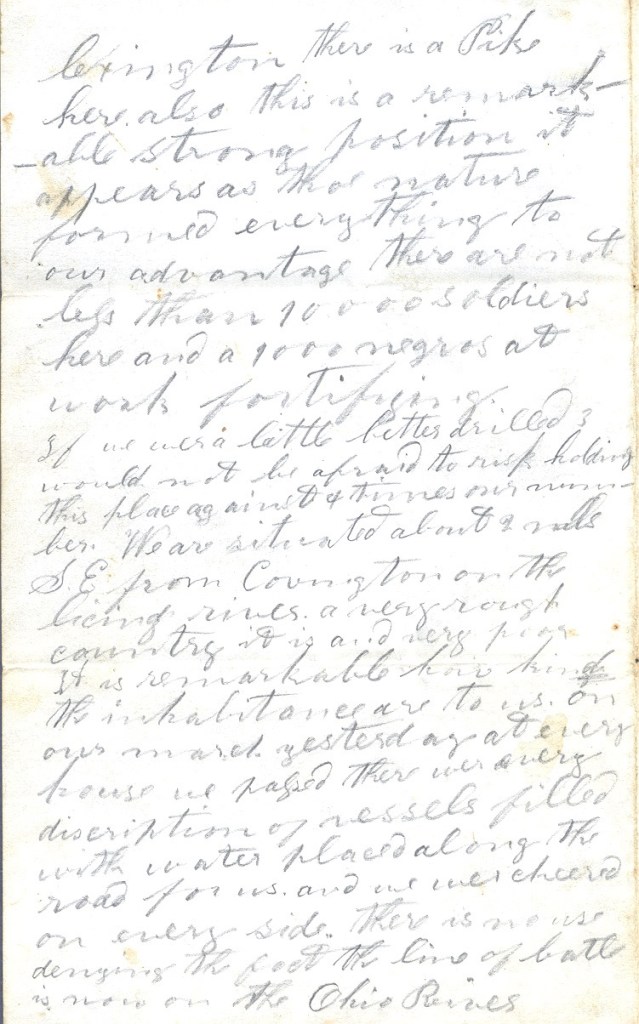 lexington there is a Pike
here also this is a remark-
-able strong position it
appears as thoe nature
formed everything to
our advantage there are not
less than 10000 soldiers
here and a 1000 negros at
work fortifying.
If we were a little better drilled I
would not be afraid to risk holding
this place against 4 times our num-
ber. We are situated about 2 mils
S.E from Covington on the
licing river. a very rough
country it is and very poor
It is remarkable how kind
the inhabitance are to us. on
our march yesterday at every
house we passed there wer every
discription of vessels filled
with water placed along the
road for us. and we wer cheered
on every side. there is no use
denying the fact the line of battle
is now on the Ohio River